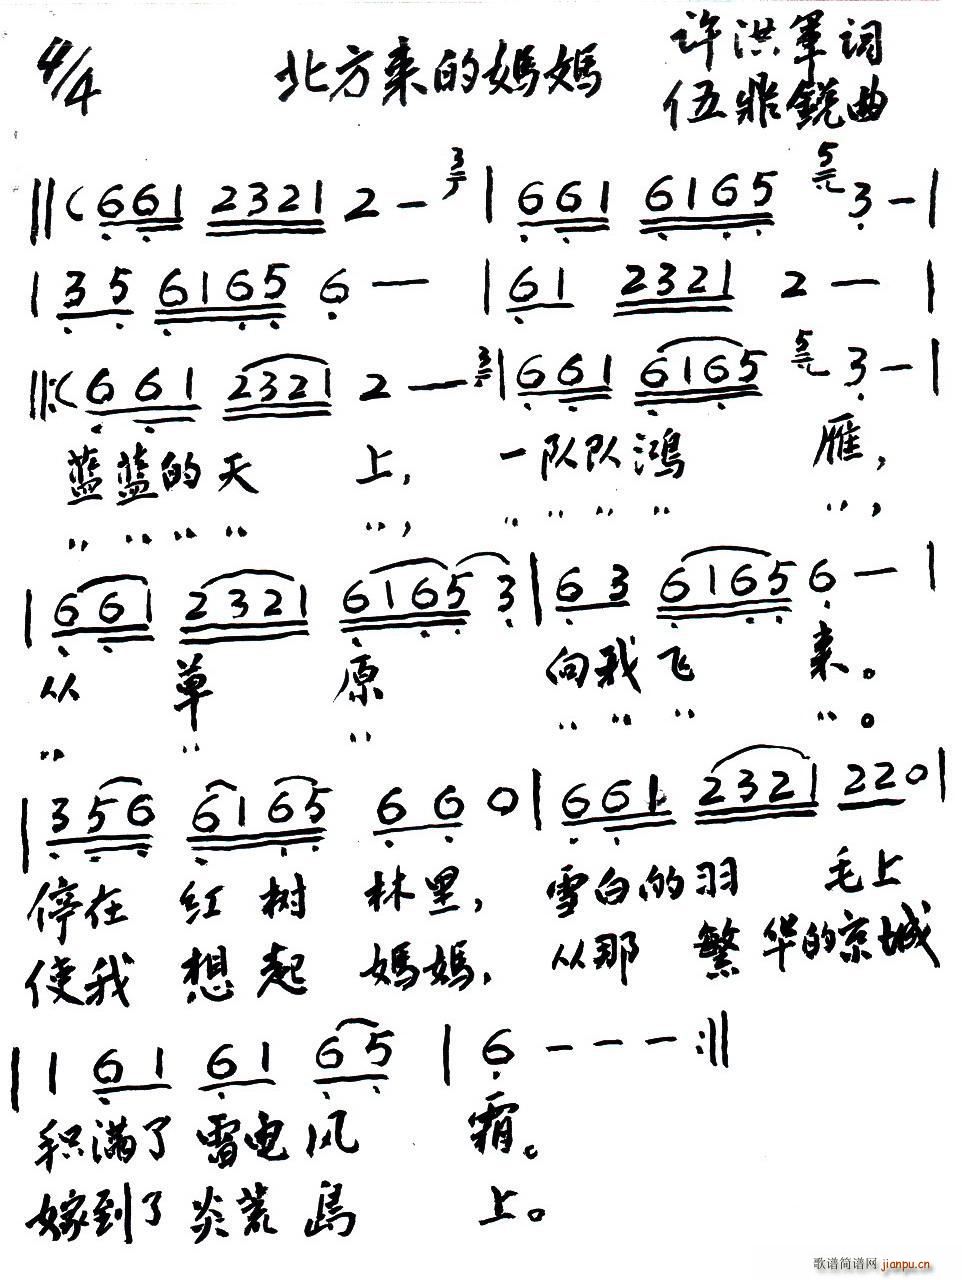 4/4 北方来的媽媽 许洪軍词
伍鼎鋭曲
‖( 6 6 1 2 3 2 1 2 — 3 | 6 6 1 6 1 6 5 5 3 — |
| 3 5 6 1 6 5 6 — | 6 1 2 3 2 1 2 — |
‖:( 6 6 1 2 3 2 1 2 — 3 | 6 6 1 6 1 6 5 5 3 — |
蓝蓝的天 上，一队队鸿 雁，
〃 〃 〃 〃 〃， 〃 〃 〃 〃 〃，
| 6 6 1 2 3 2 1 6 1 6 5 3 | 6 3 6 1 6 5 6 — |
从 草 原 向我飞 来。
〃 〃 〃 〃 〃 〃 〃。
| 3 5 6 6 1 6 5 6 6 0 | 6 6 1 2 3 2 1 2 2 0 |
停在 红树 林里，雪白的羽 毛上
使我 想起 媽媽，从那 繁华的京城
| 1 6 1 6 1 6 5 | 6 — — — :‖
积满了雷电风 霜。
嫁到了炎荒島 上。
歌谱简谱网 jianpu.cn